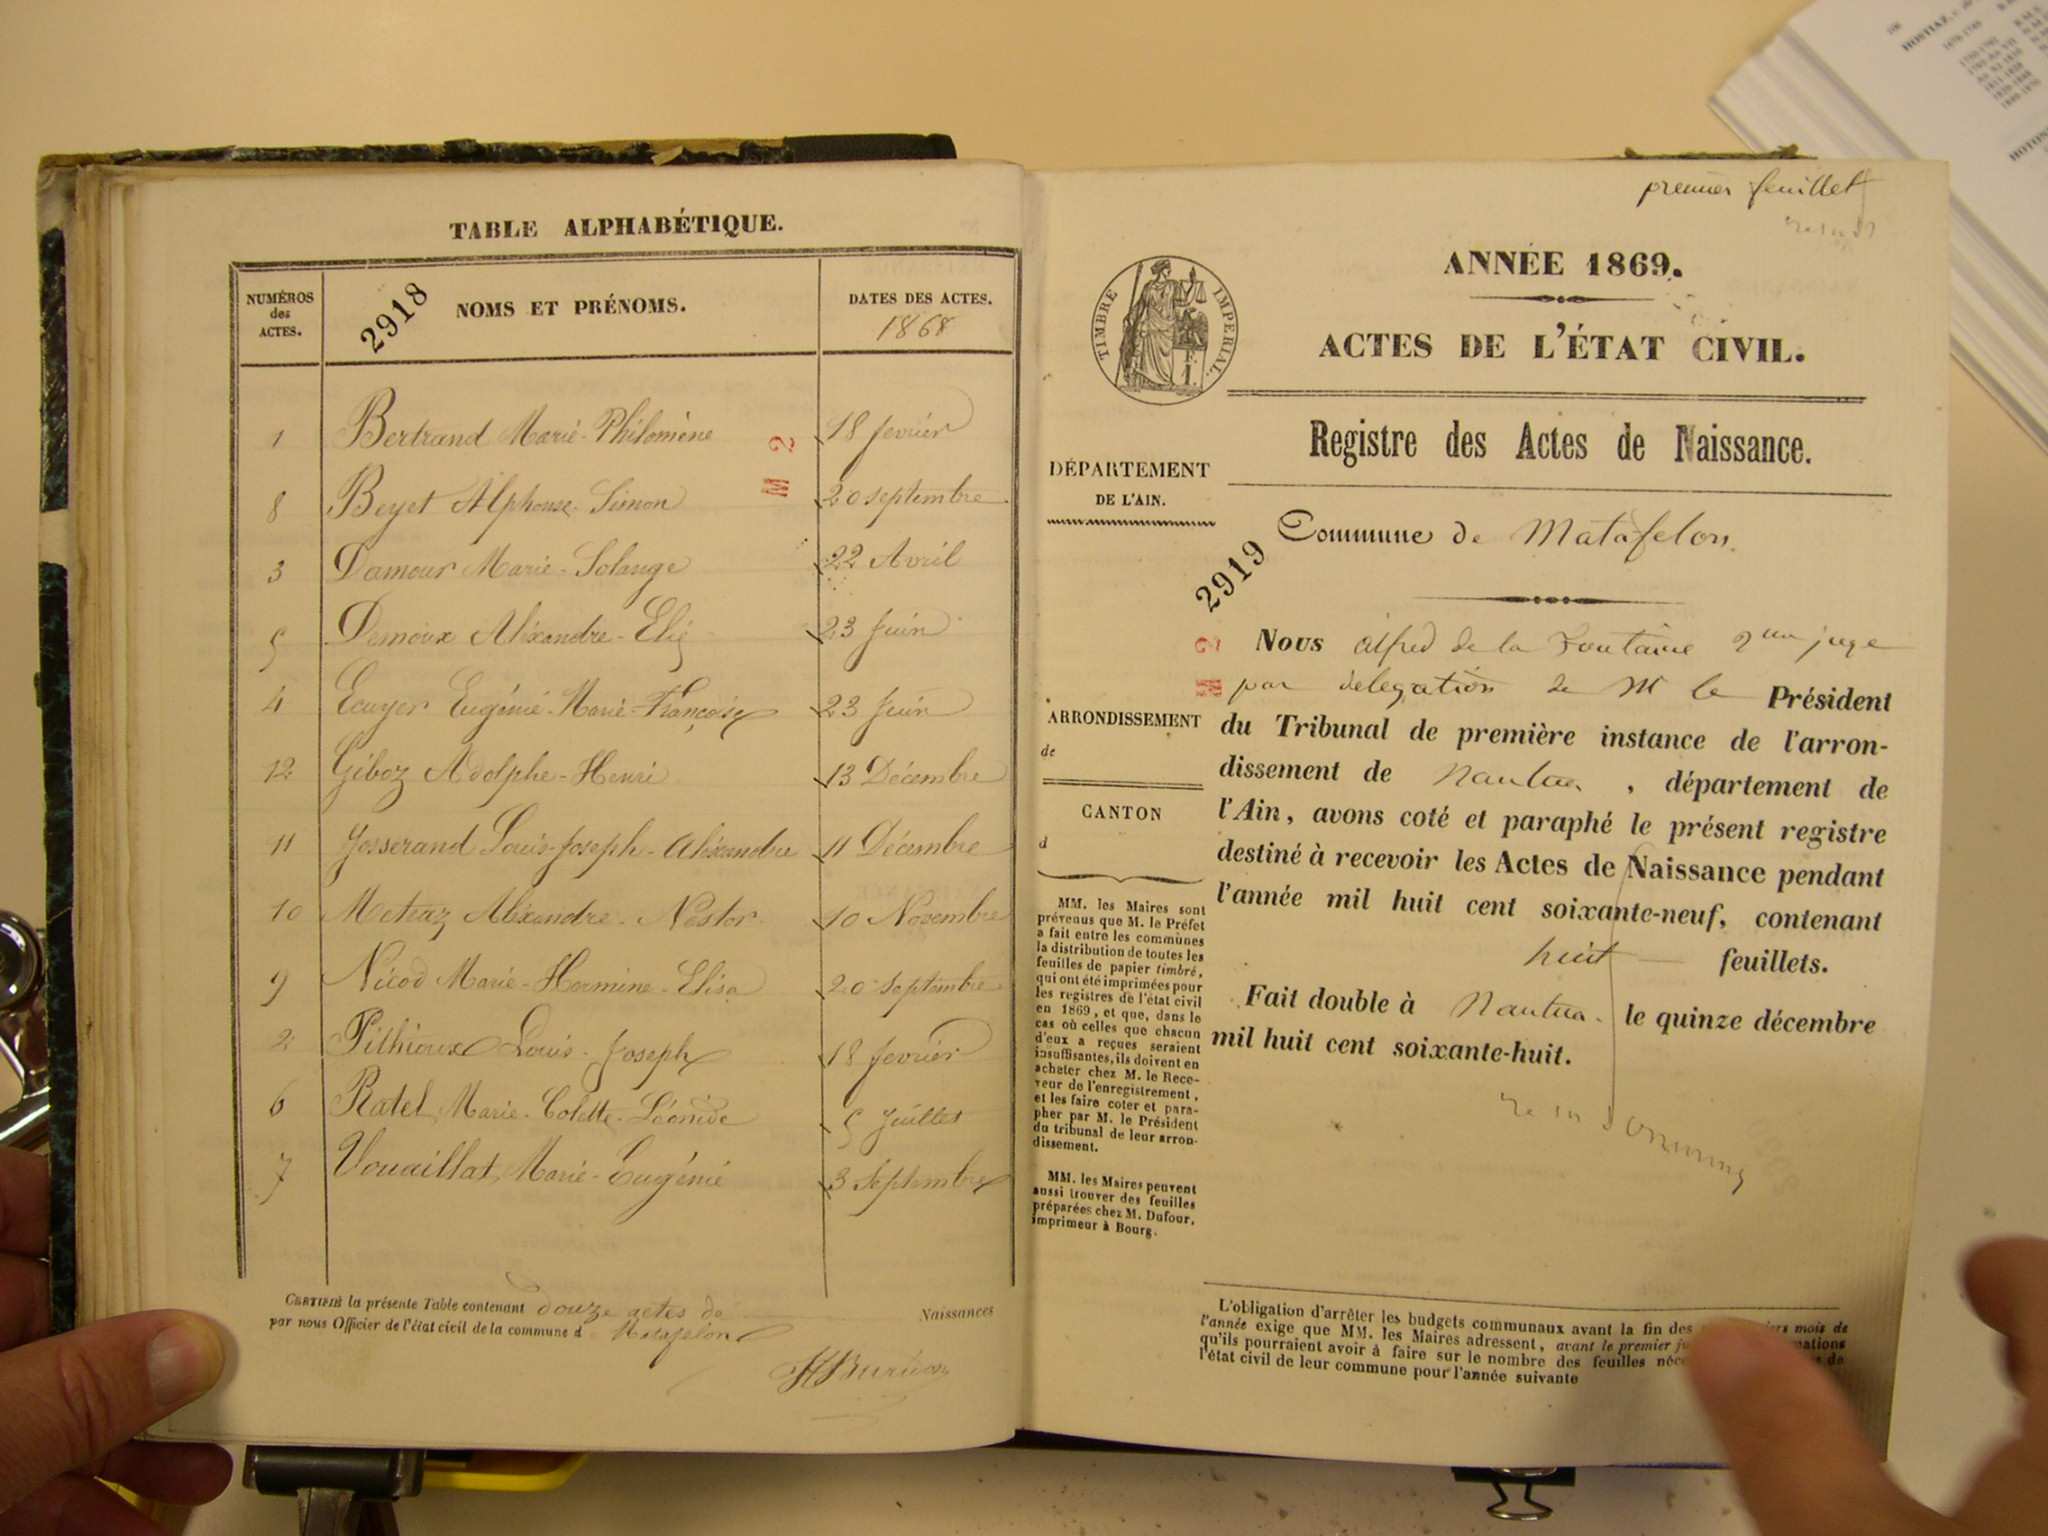 TABLE ALPHABÉTIQUE.
NUMÉROS des ACTES.
2918
NOMS ET PRÉNOMS.
DATES DES ACTES.
1868
1 Bertrand Marie-Philomène 18 fevrier
M 2
8 Beyet Alphonse-Simon 20 septembre
3 Damour Marie-Solange 22 Avril
5 Demoux Aléxandre-Elie 23 Juin
4 Ecuyer Eugénie-Marie-Françoise 23 Juin
12 Giboz Adolphe-Henri 13 Décembre
11 Josserand Louis-Joseph-Aléxandre 11 Décembre
10 Meteraz Aléxandre-Nestor 10 Novembre
9 Nicod Marie-Hermine-Elisa 20 septembre
2 Pithioux Louis-Joseph 18 fevrier
6 Ratel Marie-Colette-Léonide 5 Juillet
7 Vouaillat Marie-Eugénie 3 Septembre
CERTIFIÉ la présente Table contenant douze actes de Naissances
par nous Officier de l'état civil de la commune d Matafelon
premier feuillet
TIMBRE IMPERIAL.
ANNÉE 1869.
ACTES DE L'ÉTAT CIVIL.
Registre des Actes de Naissance.
DÉPARTEMENT
DE L'AIN.
Commune de Matafelon.
2919
M 2
Nous alfred de la Fontaine juge
par delegation de M le Président
du Tribunal de première instance de l'arron-
dissement de Nantua, département de
l'Ain, avons coté et paraphé le présent registre
destiné à recevoir les Actes de Naissance pendant
l'année mil huit cent soixante-neuf, contenant
huit feuillets.
Fait double à Nantua. le quinze décembre
mil huit cent soixante-huit.
ARRONDISSEMENT
de
CANTON
d
MM. les Maires sont
prévenus que M. le Préfet
a fait entre les communes
la distribution de toutes les
feuilles de papier timbré,
qui ont été imprimées pour
les registres de l'état civil
en 1869, et que, dans le
cas où celles que chacun
d'eux a reçues seraient
insuffisantes, ils doivent en
acheter chez M. le Rece-
veur de l'enregistrement,
et les faire coter et para-
pher par M. le Président
du tribunal de leur arron-
dissement.
MM. les Maires peuvent
aussi trouver des feuilles
préparées chez M. Dufour,
imprimeur à Bourg.
L'obligation d'arrêter les budgets communaux avant la fin des mois de
l'année exige que MM. les Maires adressent, avant le premier
qu'ils pourraient avoir à faire sur le nombre des feuilles de
l'état civil de leur commune pour l'année suivante
HOSTIAZ,